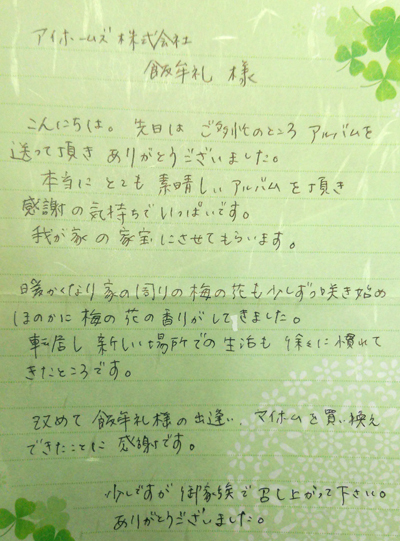 アイホームズ株式会社
飯牟礼 様
こんにちは。先日は ご多忙のところ アルバムを
送って頂き ありがとうございました。
本当に とても 素晴しい アルバム を 頂き
感謝の気持ちでいっぱいです。
我が家 の 家宝にさせてもらいます。
暖かくなり 家の周りの梅の花も少しずつ咲き始め
ほのかに 梅の 花の香りがしてきました。
転居し 新しい場所での生活も 徐々に慣れて
きたところです。
改めて 飯牟礼様の出逢い、マイホームを買い換え
できたことに 感謝です。
少しですが 御家族で召し上がって下さい。
ありがとうございました。